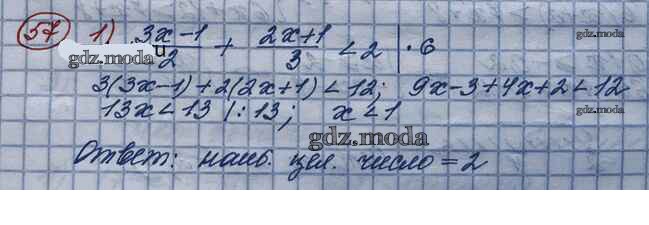 57 1) (3x-1)/2 + (2x+1)/3 < 2 | · 6
gdz.moda
u
3(3x-1)+2(2x+1) < 12; 9x-3+4x+2 < 12
13x < 13 |:13; x < 1
gdz.moda
gdz.moda
Ответ: наиб. цел. число = 2